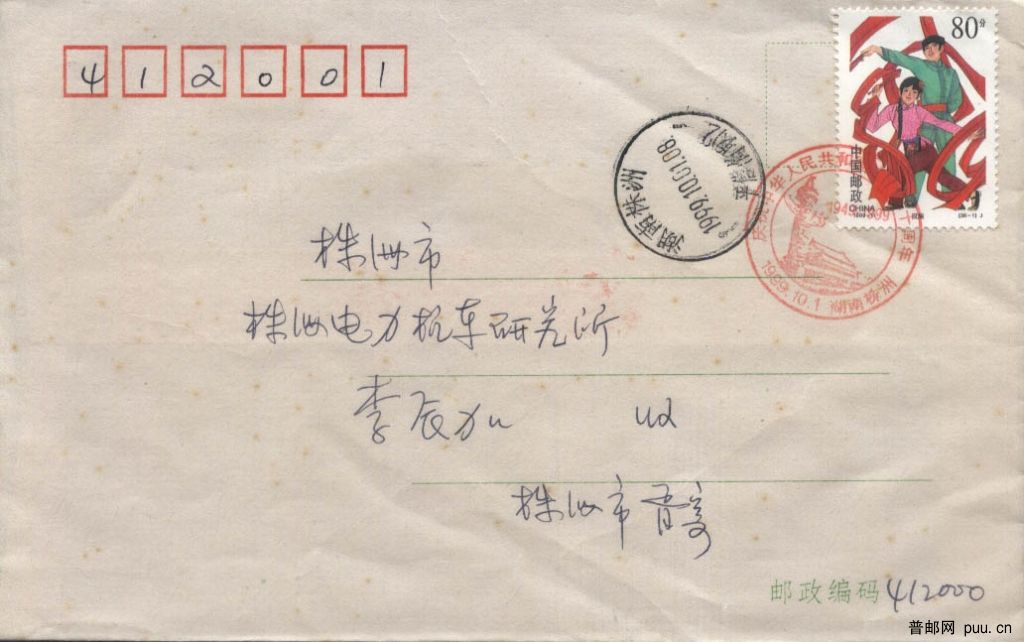 412001
80分
中国邮政
CHINA
湖南株洲
1999.10.01.08.
庆祝中华人民共和
十周年
1949 1999
1999.10.1 湖南株洲
株洲市
株洲电力机车研究所
李辰加 收
株洲市
邮政编码 412000
普邮网 puu.cn